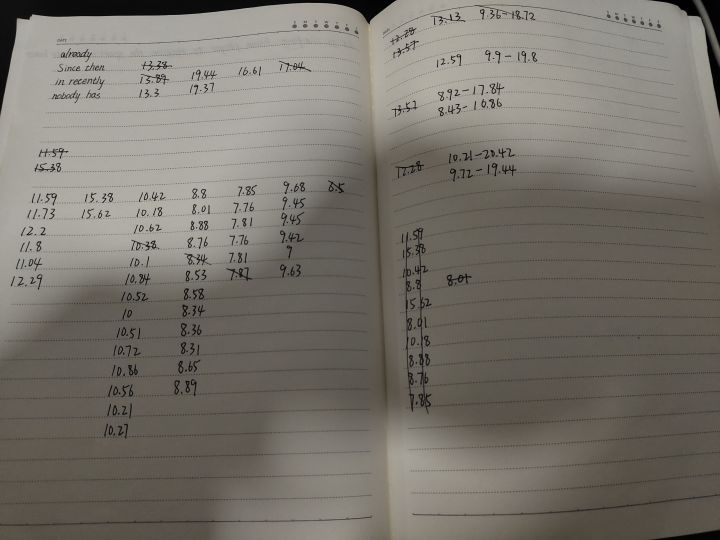 DATE
already
Since then 13.38 17.04
in recently 13.89 19.44 16.61
nobody has 13.3 19.37
11.59
15.38
11.59 15.38 10.42 8.8 7.85 9.68 8.5
11.73 15.62 10.18 8.01 7.76 9.45
12.2 10.62 8.88 7.81 9.45
11.8 10.38 8.76 7.76 9.42
11.04 10.1 8.34 7.81 9
12.29 10.84 8.53 7.87 9.63
10.52 8.58
10 8.34
10.51 8.36
10.72 8.31
10.86 8.65
10.56 8.89
10.21
10.27
13.13 9.36-18.72
12.28
13.57
12.59 9.9-19.8
8.92-17.84
13.57 8.43-16.86
10.21-20.42
12.28 9.72-19.44
11.59
15.38
10.42
8.8 8.01
15.62
8.01
10.18
8.88
8.76
7.85